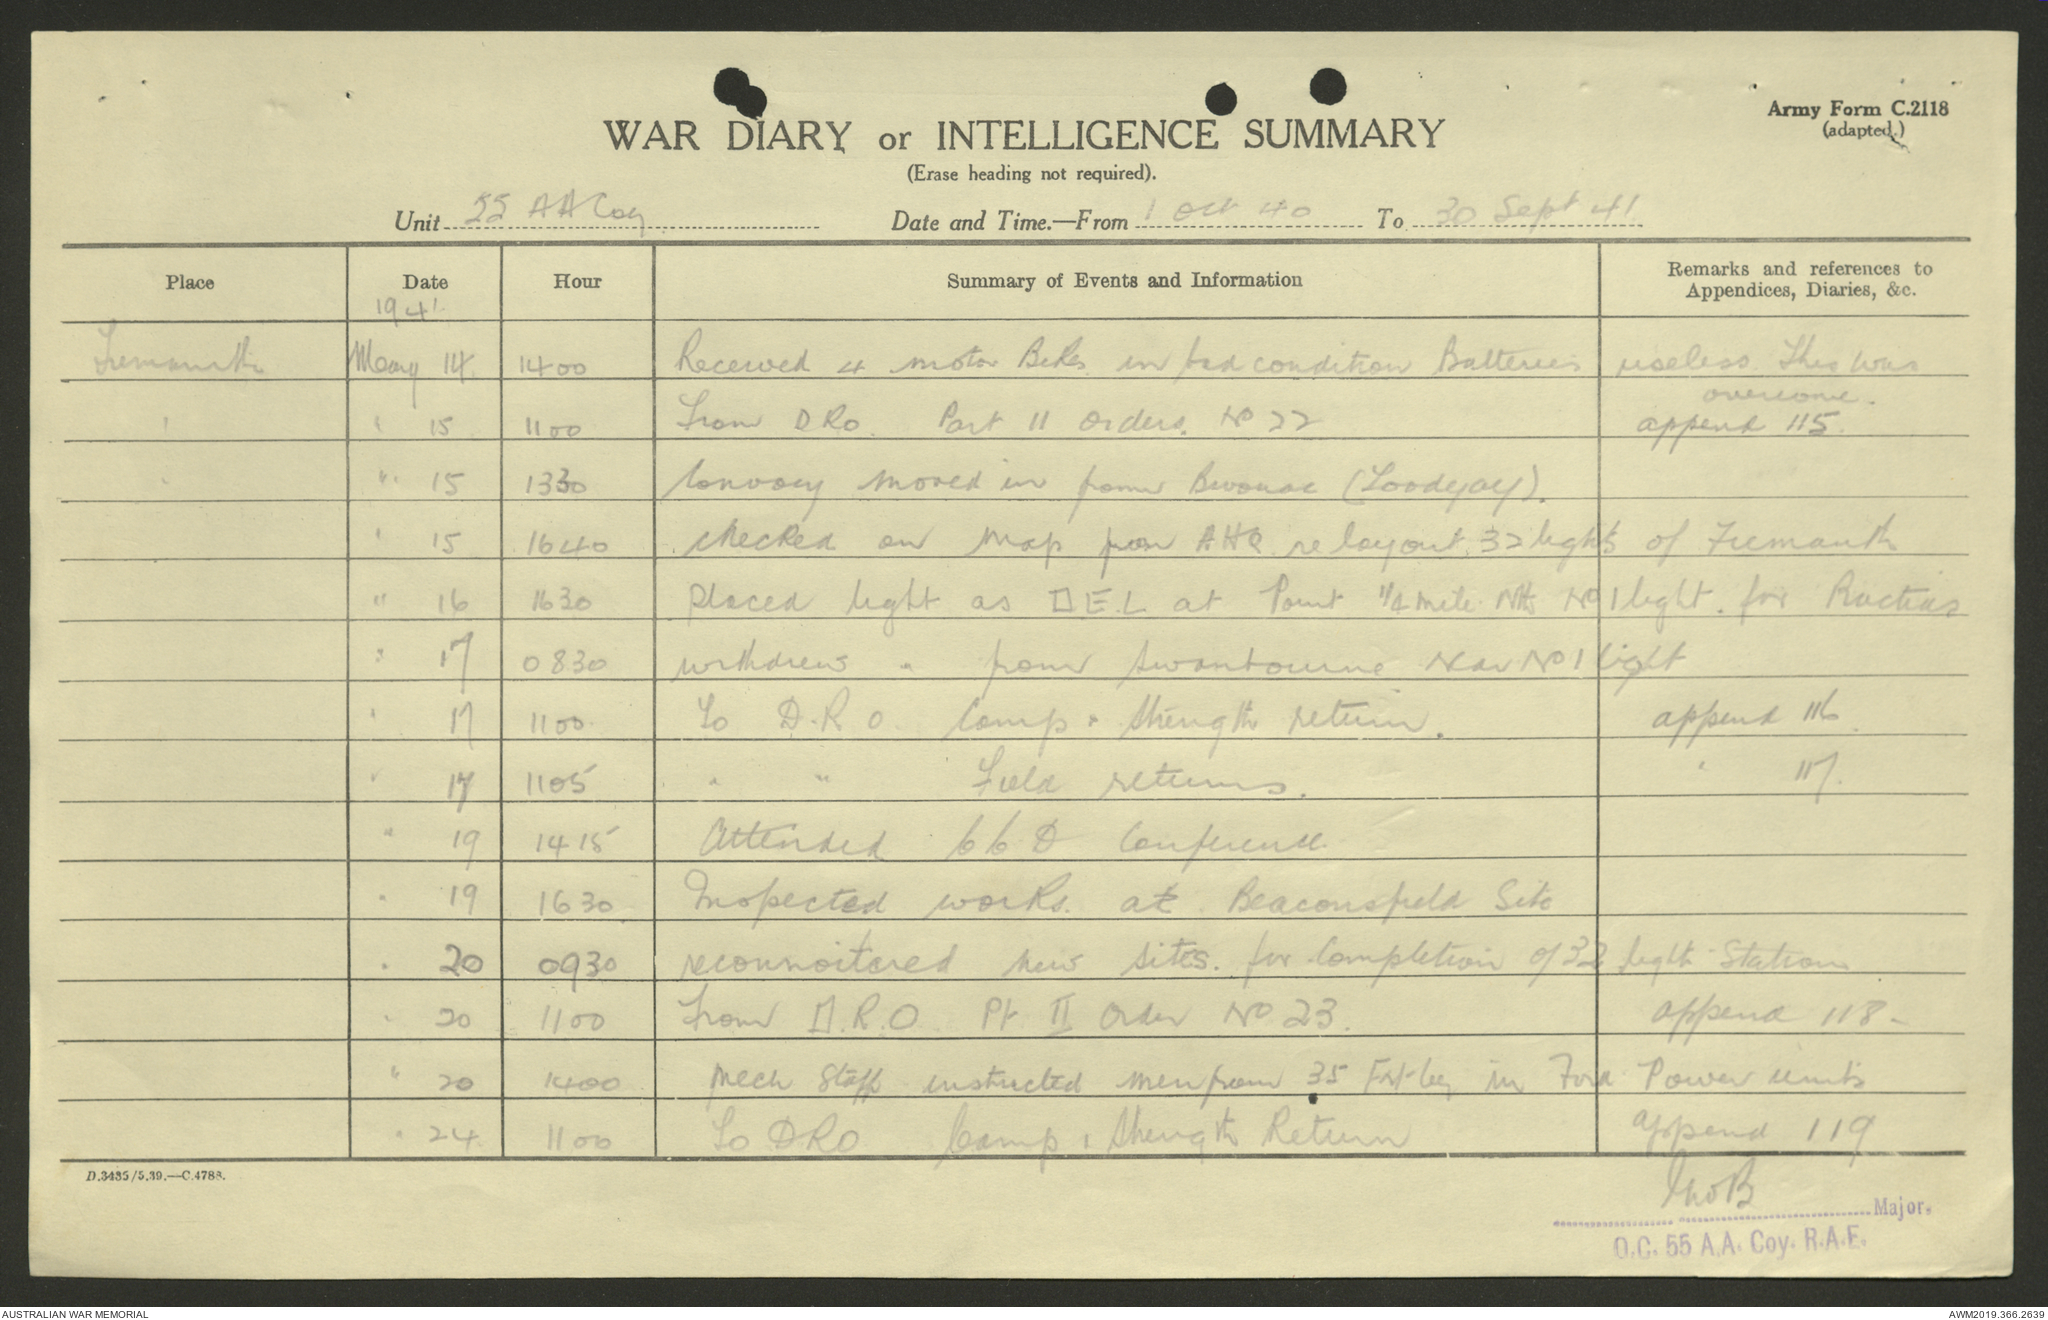 Army Form C.2118
(adapted.)
WAR DIARY or INTELLIGENCE SUMMARY
(Erase heading not required).
Unit 55 AA Coy Date and Time.—From 1 Oct 40 To 30 Sept 41
Place Date Hour Summary of Events and Information Remarks and references to Appendices, Diaries, &c.
1941
Fremantle May 14 1400 Received 4 motor Bikes in bad condition Batteries useless This was overcome.
" " 15 1100 From DRO. Part 11 Orders. No 22 append 115.
" " 15 1330 Convoy moved in from Bivouac (Toodyay).
" 15 1640 checked on map from AHQ re layout 32 lights of Fremantle
" 16 1630 placed light as D.E.L at Point 1/4 mile Nth No 1 light. for Practice
" 17 0830 withdrew " from Swanbourne Near No 1 light
" 17 1100 To D.R.O. Camp & Strength return. append 116.
" 17 1105 " " Field returns. " 117.
" 19 1415 Attended Conference
" 19 1630 Inspected works. at Beaconsfield Site
" 20 0930 reconnoitered new sites. for Completion of 32 light Stations
" 20 1100 From D.R.O. Pt II Order No 23. append 118-
" 20 1400 Mech Staff instructed men from 35 Frt-Coy in Ford Power units
" 24. 1100 To DRO Camp & Strength Return append 119
D.3435/5.39.—C.4788.
Major.
O.C. 55 A.A. Coy. R.A.E.
AUSTRALIAN WAR MEMORIAL
AWM2019.366.2639